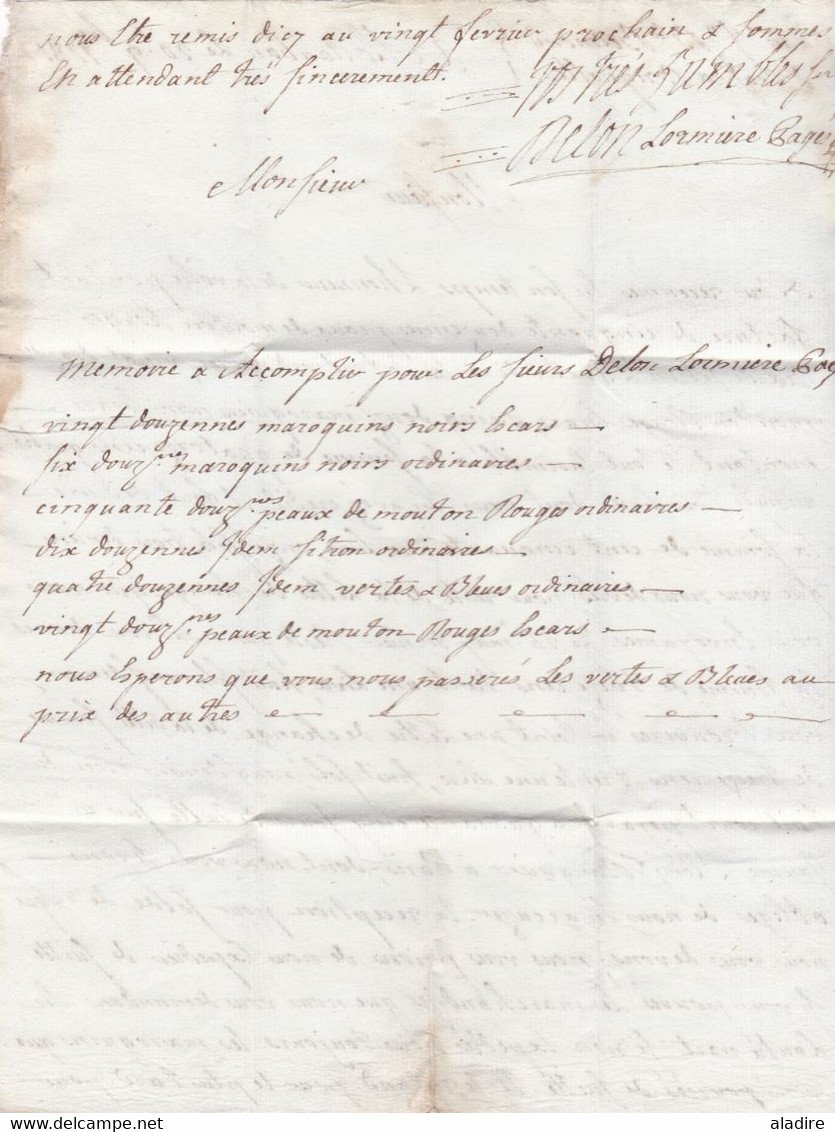 nous Etre remis dicy au vingt fevrier prochain & sommes
En attendant très sincerement.
Vos très humbles ser
Delon Lormiere Pages
Monsieur
Memoire a Accomplir pour Les sieurs Delon Lormiere Pag
vingt douzennes maroquins noirs Ecars
six douz.nes maroquins noirs ordinaires
cinquante douz.nes peaux de mouton Rouges ordinaires
dix douzennes Idem sitron ordinaires
quatre douzennes Idem vertes & Bleues ordinaires
vingt douz.nes peaux de mouton Rouges Ecars
nous Esperons que vous nous passerés Les vertes & Bleues au
prix des autres
© aladire
www.delcampe.net